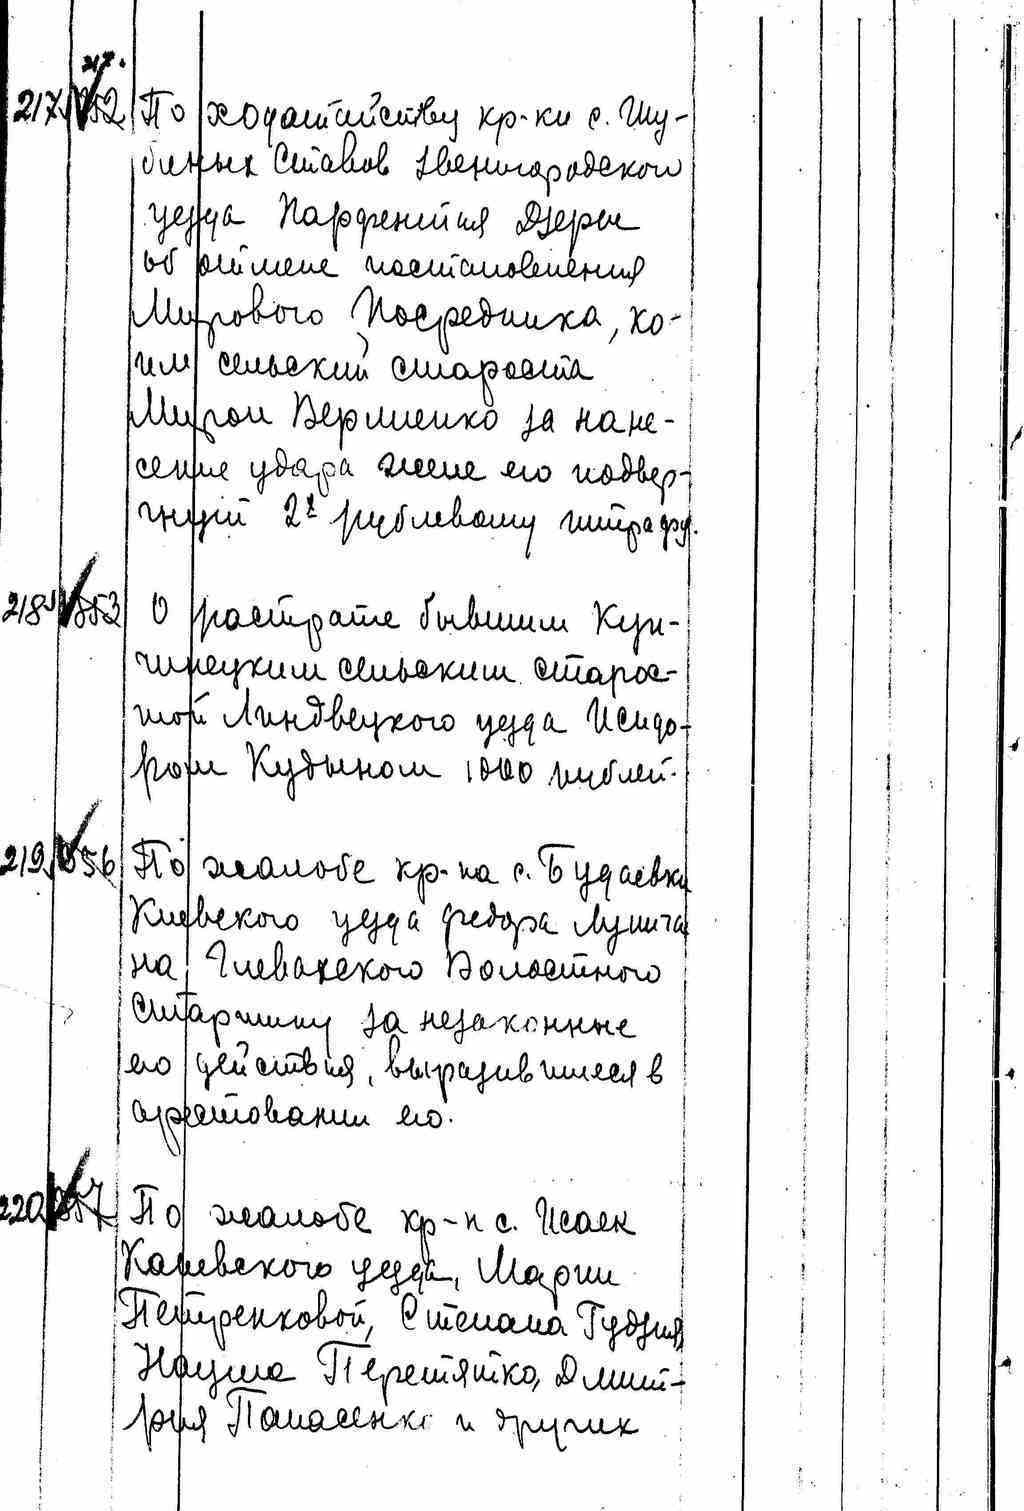 217.
217 852 По ходатайству кр-ки с. Шу-
биных Ставов Звенигородского
уезда Парфентия Дзеры
об отмене постановления
Мирового Посредника, ко-
им сельский староста
Мирон Вермиенко за нане-
сение удара жене его подвер-
гнут 2х рублевому штрафу.
218 853 О растрате бывшим Куп-
чинецким сельским старос-
той Липовецкого уезда Исидо-
ром Кудыном 1000 рублей.
219 856 По жалобе кр-на с. Будаевки
Киевского уезда Федора Лунича
на Глевахского Волостного
Старшину за незаконные
его действия, выразившиеся в
арестовании его.
220 857 По жалобе кр-н с. Исаек
Каневского уезда, Марии
Петренковой, Степана Гудзия,
Наума Перетятко, Дмит-
рия Панасенко и других